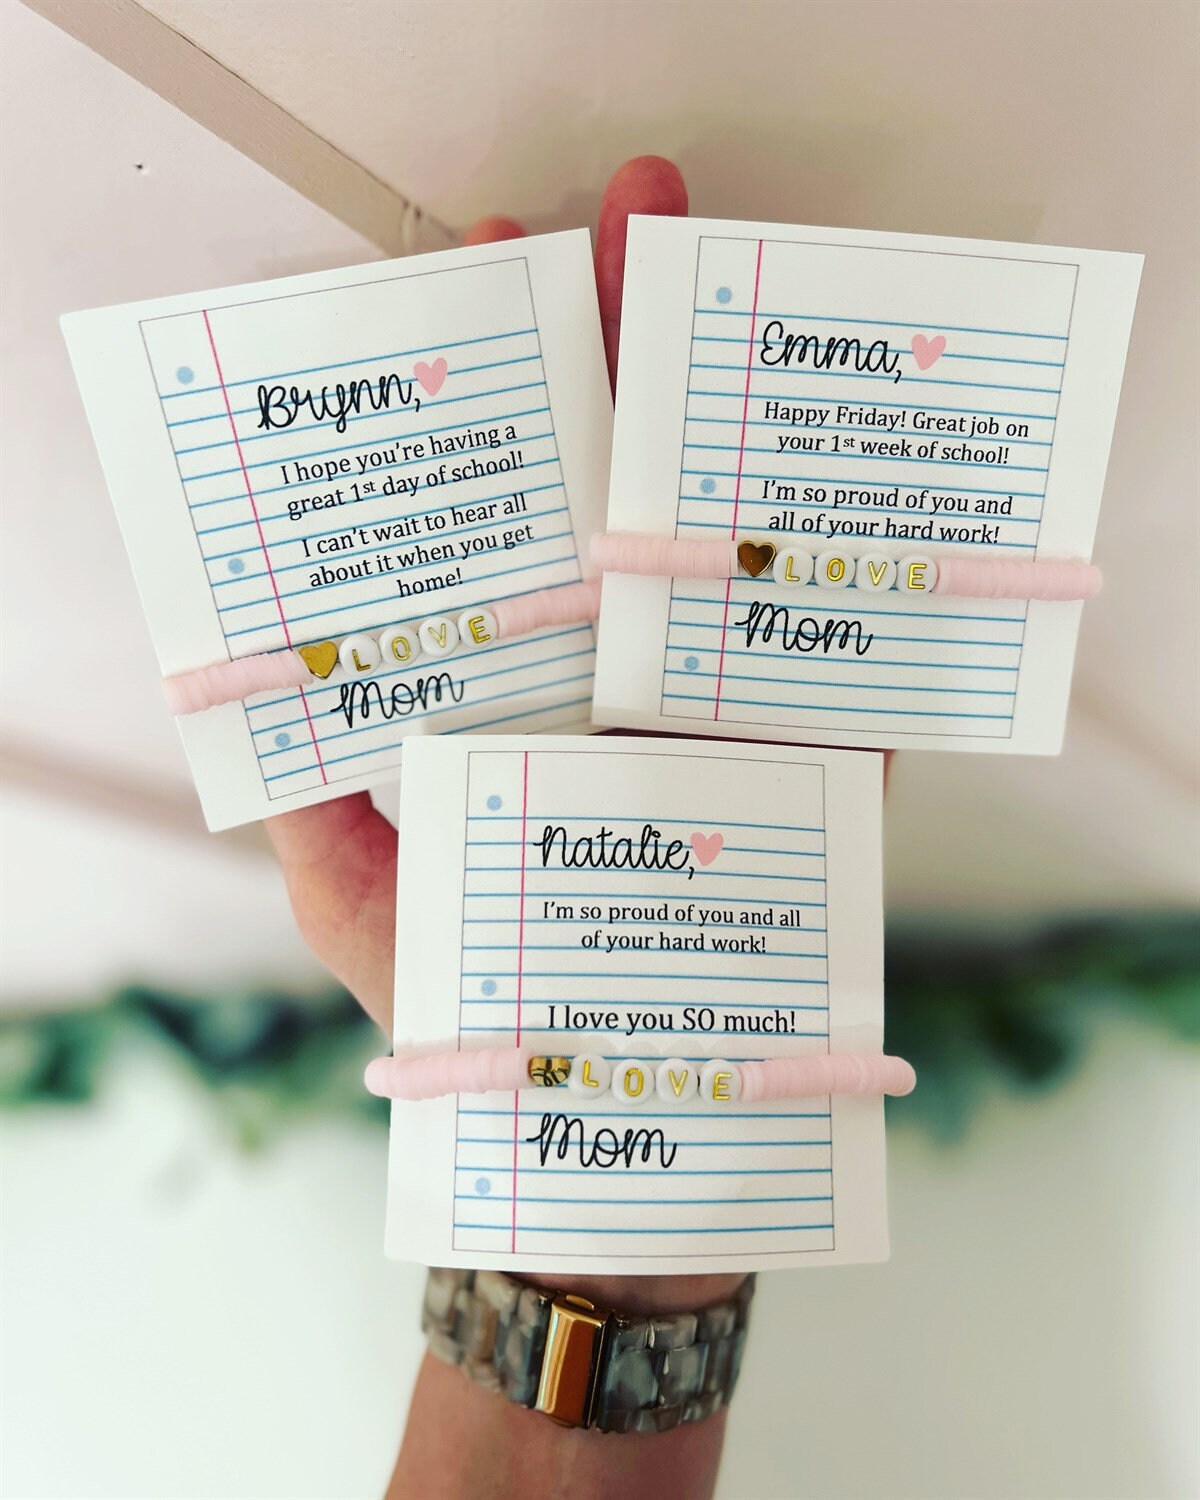 Brynn,
I hope you're having a
great 1st day of school!
I can't wait to hear all
about it when you get
home!
LOVE
Mom
Emma,
Happy Friday! Great job on
your 1st week of school!
I'm so proud of you and
all of your hard work!
LOVE
Mom
Natalie,
I'm so proud of you and all
of your hard work!
I love you SO much!
LOVE
Mom